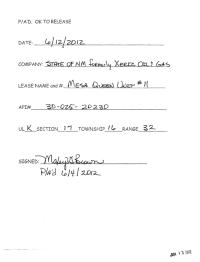 P/A'D. OK TO RELEASE
DATE: 6/12/2012
COMPANY: STATE OF NM formerly Xeric Oil & Gas
LEASE NAME and #. Mesa Queen Unit #11
API# 30-025-20230
UL K SECTION 17 TOWNSHIP 16 RANGE 32
SIGNED: Maley Brown
P/A'd 6/4/2012
JUN 13 2012